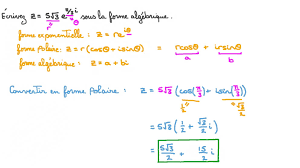 Écrivez z = 5√3 e^(π/3 i) sous la forme algébrique.
r θ
forme exponentielle : z = re^(iθ)
forme polaire : z = r(cosθ + isinθ) = rcosθ + irsinθ
a b
forme algébrique : z = a + bi
Convertir en forme polaire : z = 5√3 (cos(π/3) + isin(π/3))
1/2 √3/2
= 5√3 (1/2 + √3/2 i)
= 5√3/2 + 15/2 i